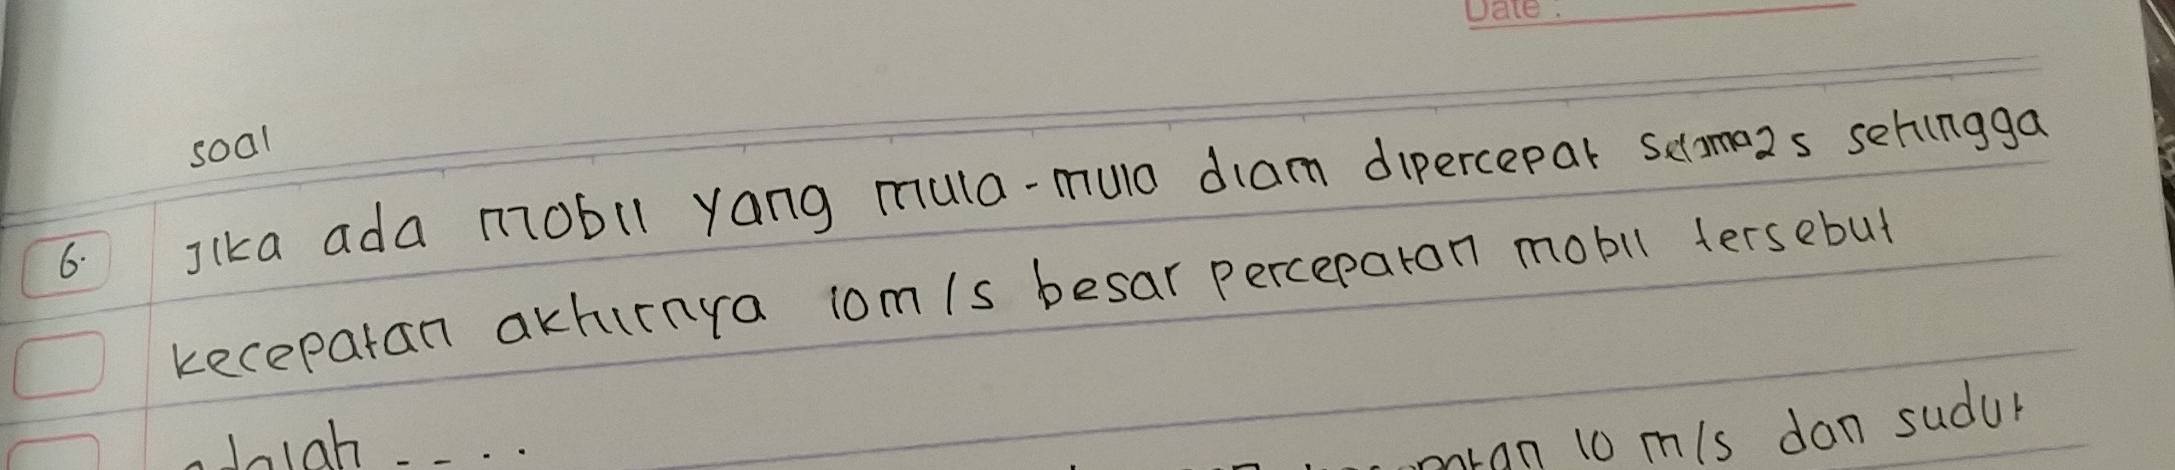 Date :
soal
6. Jika ada mobil yang mula-mula diam dipercepat selama 2 s sehingga
kecepatan akhirnya 10 m/s besar percepatan mobil tersebut
adalah ....
10 m/s dan sudut